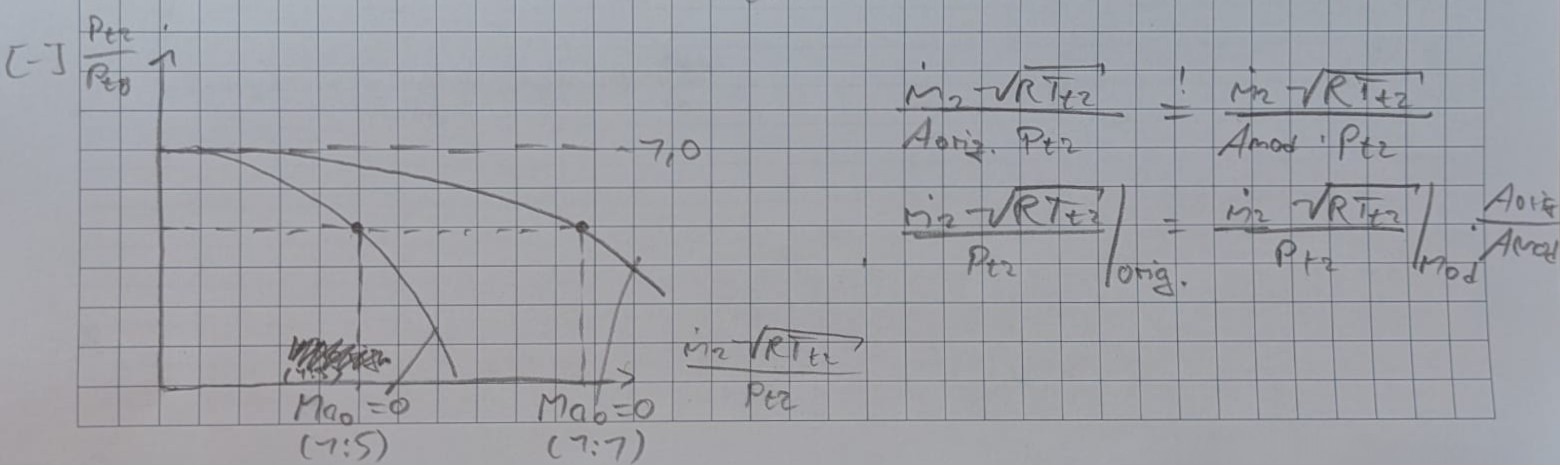 [-] Pt2/Pt0
1,0
Ma0=0 Ma0=0
(1:5) (1:1)
ṁ2 √(RTt2) / Pt2
ṁ2 √(RTt2) / (Aorig. Pt2) =! ṁ2 √(RTt2) / (Amod · Pt2)
ṁ2 √(RTt2) / Pt2 |orig. = ṁ2 √(RTt2) / Pt2 |Mod · Aorig / Amod